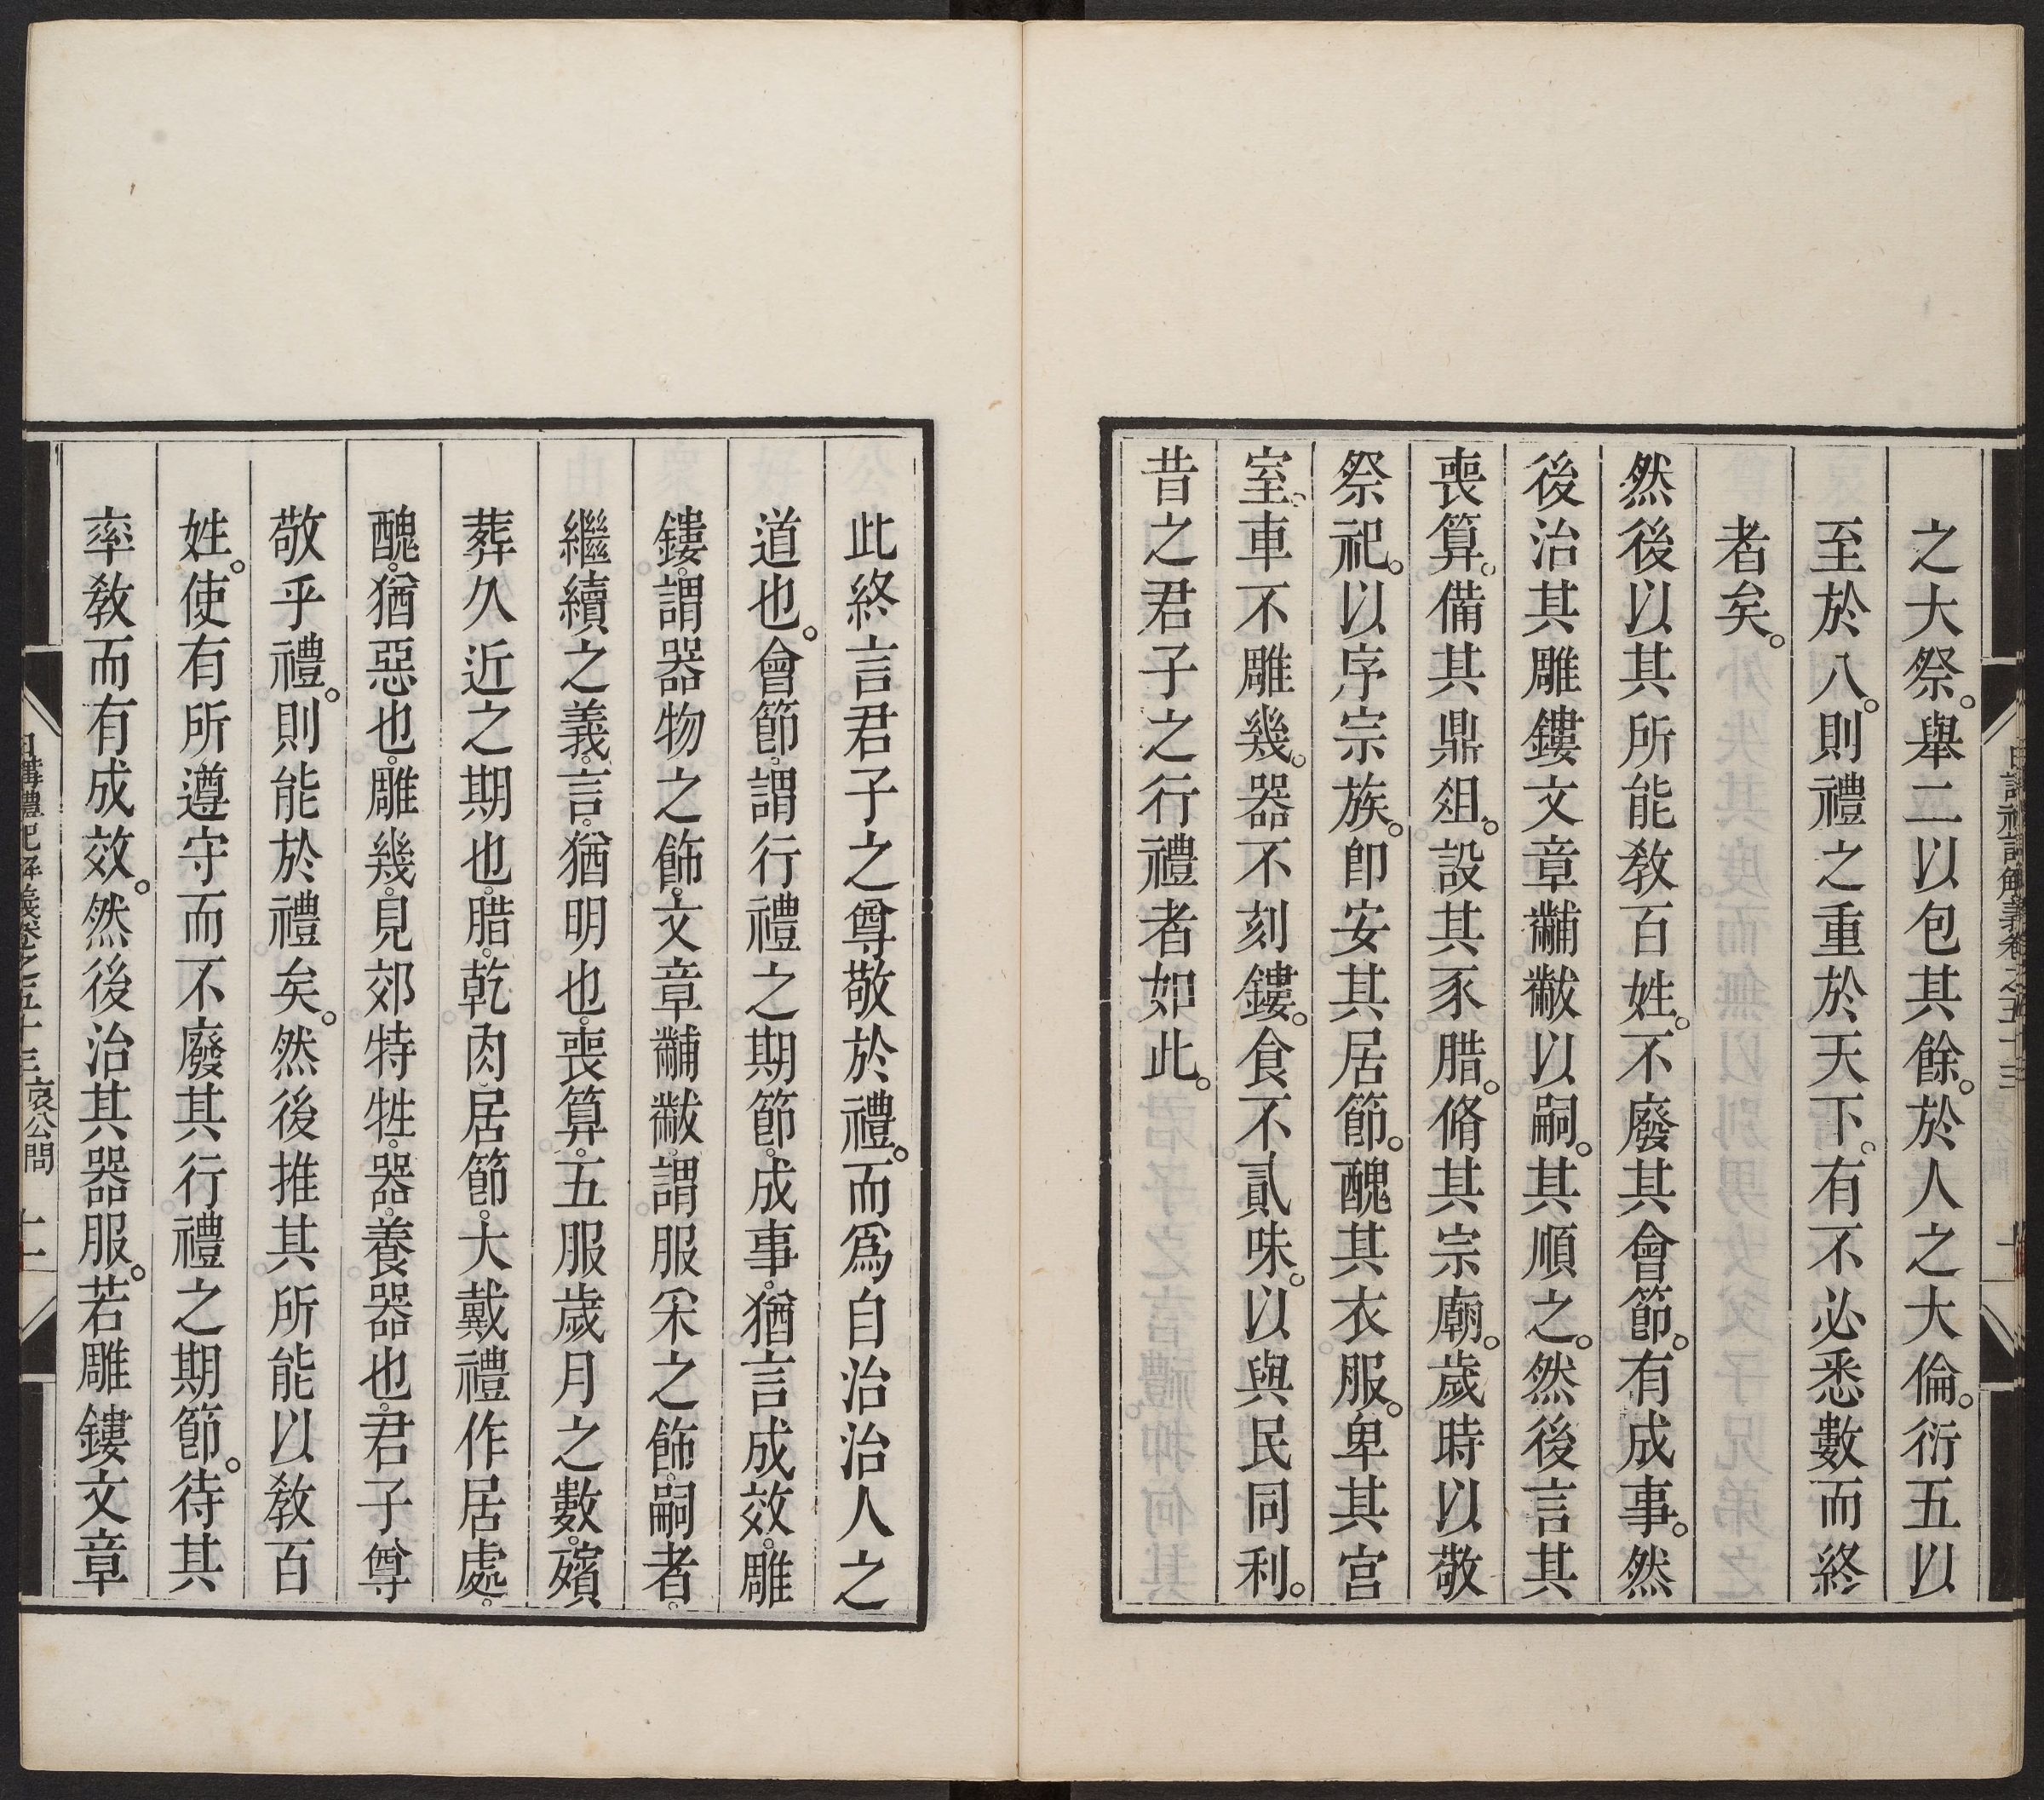 之大祭。舉二以包其餘。於人之大倫。衍五以
至於八。則禮之重於天下。有不必悉數而終
者矣。
然後以其所能敎百姓。不廢其會節。有成事。然
後治其雕鏤文章黼黻以嗣。其順之。然後言其
喪算。備其鼎俎。設其豕腊。脩其宗廟。歲時以敬
祭祀。以序宗族。卽安其居節。醜其衣服。卑其宮
室。車不雕幾。器不刻鏤。食不貳味。以與民同利。
昔之君子之行禮者如此。
此終言君子之尊敬於禮。而爲自治治人之
道也。會節。謂行禮之期節。成事。猶言成效。雕
鏤。謂器物之飾。文章黼黻。謂服采之飾。嗣者。
繼續之義。言。猶明也。喪算。五服歲月之數。殯
葬久近之期也。腊。乾肉。居節。大戴禮作居處。
醜。猶惡也。雕幾。見郊特牲。器。養器也。君子尊
敬乎禮。則能於禮矣。然後推其所能以敎百
姓。使有所遵守而不廢其行禮之期節。待其
率敎而有成效。然後治其器服。若雕鏤文章
日講禮記解義卷之五十三 哀公問 十一